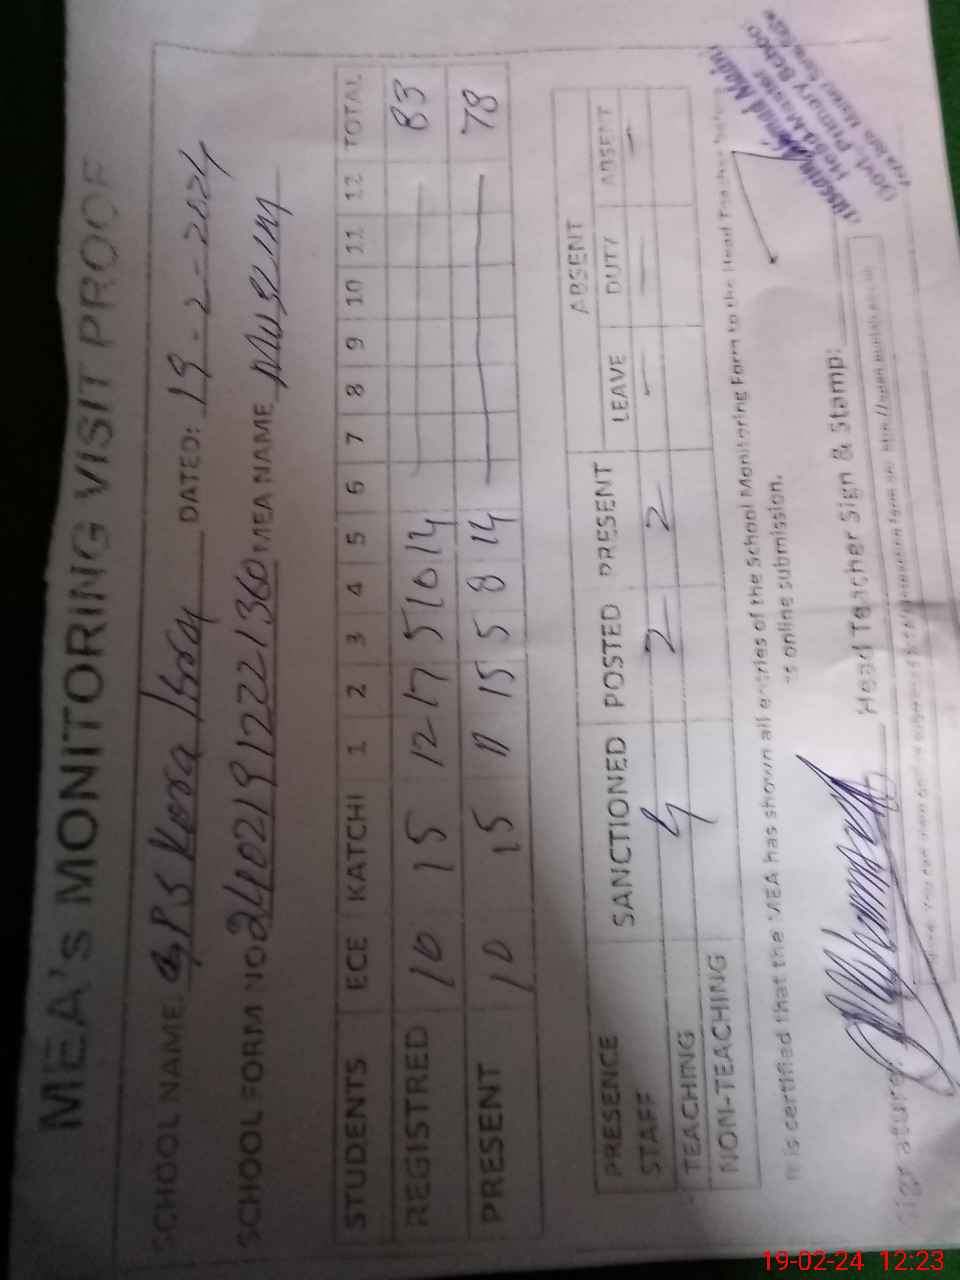 MEA's MONITORING VISIT PROOF
SCHOOL NAME: GPS Korra DATED: 19-2-2024
SCHOOL FORM NO. 241021912221360 MEA NAME
STUDENTS ECE KATCHI 1 2 3 4 5 6 7 8 9 10 11 12 TOTAL
REGISTRED 10 15 12 17 5 10 14 — 83
PRESENT 10 15 11 15 5 8 14 — 78
PRESENCE SANCTIONED POSTED PRESENT ABSENT
STAFF LEAVE DUTY ABSENT
TEACHING 4 2 2 — — —
NON-TEACHING
It is certified that the MEA has shown all entries of the School Monitoring Form to the Head
online submission.
Signature: Head Teacher Sign & Stamp:
Head Master
Govt. Primary School
19-02-24 12:23